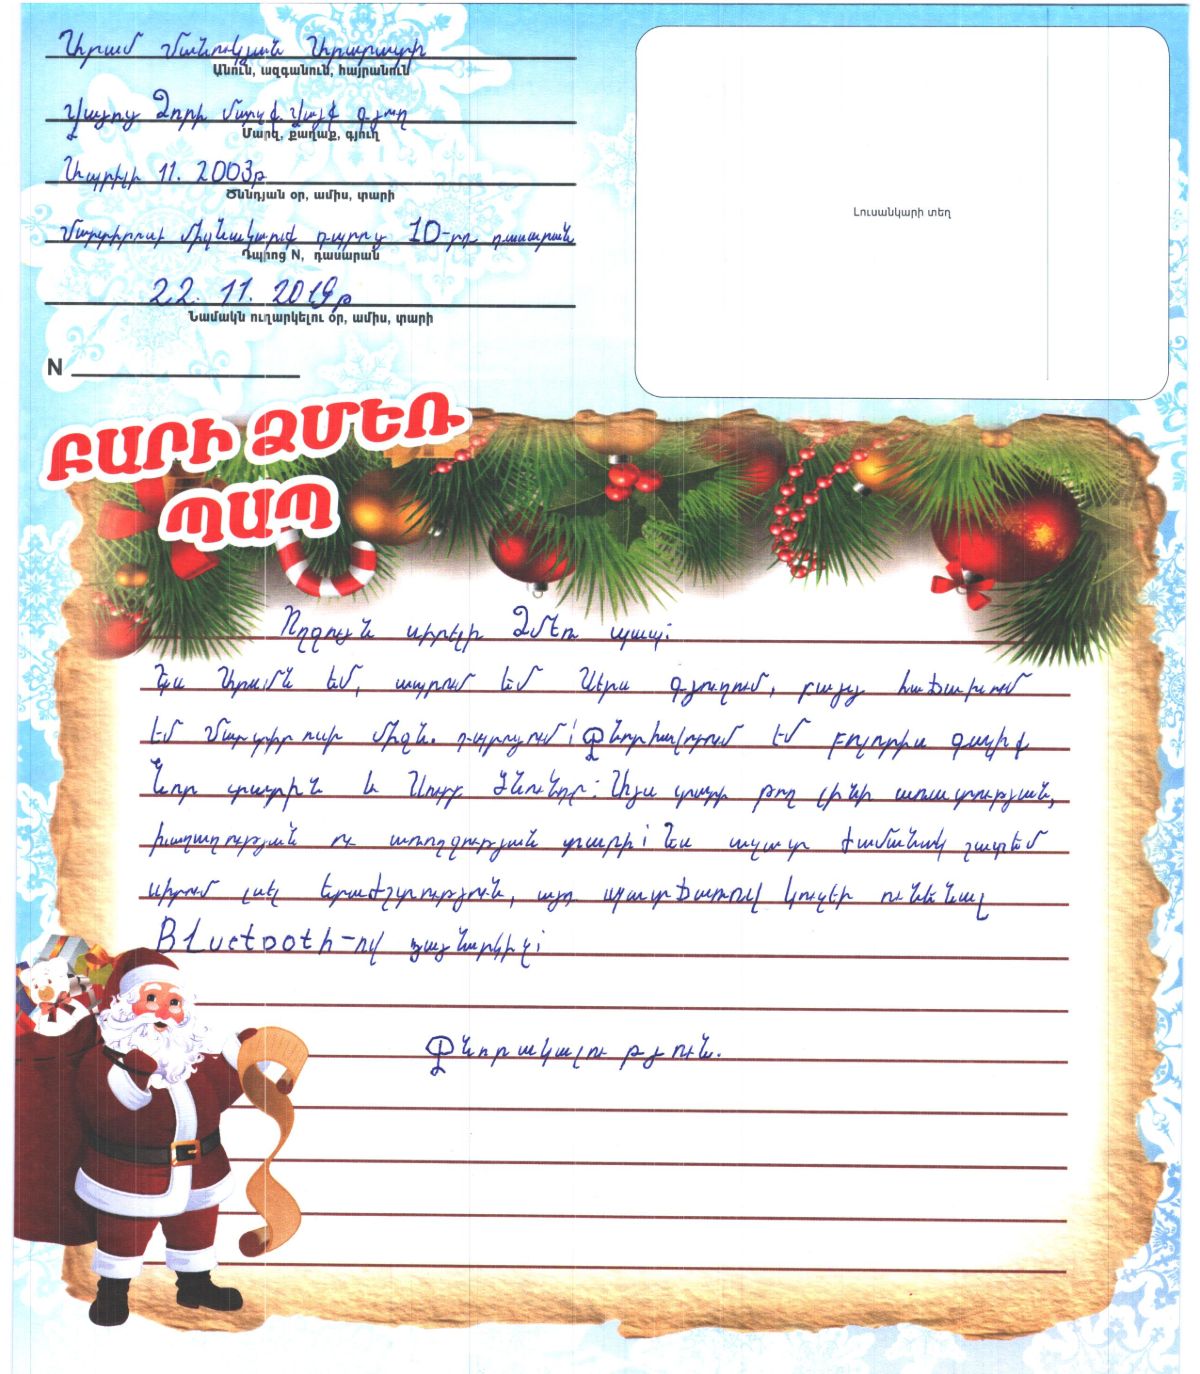 Արամ Մանուկյան Արարատի
Անուն, ազգանուն, հայրանուն
Վայոց Ձորի մարզ գյուղ
Մարզ, քաղաք, գյուղ
Ապրիլի 11. 2003թ
Ծննդյան օր, ամիս, տարի
Մարտիրոսի միջնակարգ դպրոց 10-րդ դասարան
Դպրոց N, դասարան
22. 11. 2019թ
Նամակն ուղարկելու օր, ամիս, տարի
N
Լուսանկարի տեղ
ԲԱՐԻ ՁՄԵՌ
ՊԱՊ
Ողջույն սիրելի Ձմեռ պապ։
Ես Արամն եմ, ապրում եմ Սերս գյուղում, բայց հաճախում
եմ Մարտիրոսի միջն. դպրոցում։ Շնորհավորում եմ բոլորիս գալիք
Նոր տարին և Սուրբ Ծնունդը։ Այս տարի թող լինի առատության,
խաղաղության ու առողջության տարի։ Ես ազատ ժամանակ շատ եմ
սիրում լսել երաժշտություն, այդ պատճառով կուզեի ունենալ
Bluetooth-ով բարձրախոս։
Շնորհակալություն.